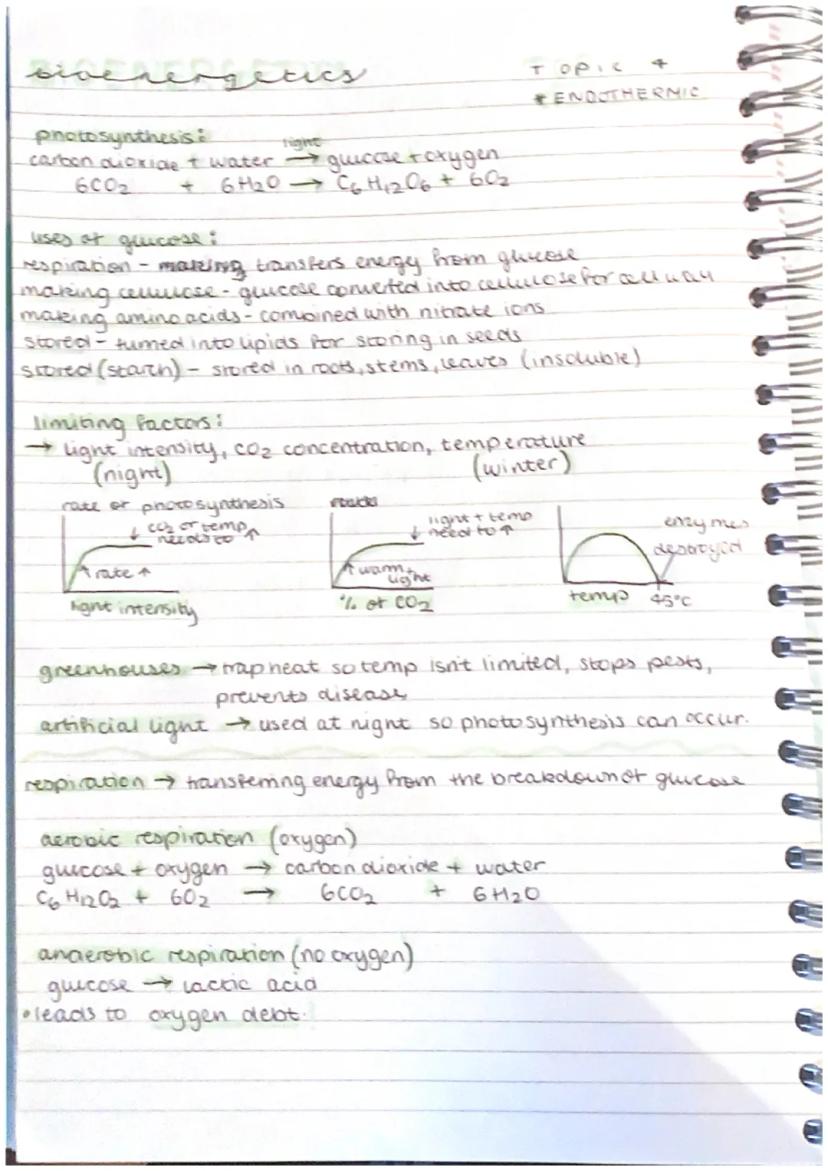 bioenergetics
TOPIC 4
* ENDOTHERMIC
photosynthesis:
light
carbon dioxide + water → glucose + oxygen
6CO₂ + 6H₂O → C₆H₁₂O₆ + 6O₂
uses of glucose:
respiration - making transfers energy from glucose
making cellulose - glucose converted into cellulose for cell wall
making amino acids - combined with nitrate ions
stored - turned into lipids for storing in seeds
stored (starch) - stored in roots, stems, leaves (insoluble)
limiting factors:
→ light intensity, CO₂ concentration, temperature
(night) (winter)
rate of photosynthesis
↓ CO₂ or temp needs to ↑
↑ rate ↑
light intensity
↓ light + temp need to ↑
↑ warm + light
% of CO₂
enzymes destroyed
temp 45°C
greenhouses → trap heat so temp isn't limited, stops pests,
prevents disease
artificial light → used at night so photosynthesis can occur.
respiration → transferring energy from the breakdown of glucose
aerobic respiration (oxygen)
glucose + oxygen → carbon dioxide + water
C₆H₁₂O₂ + 6O₂ → 6CO₂ + 6H₂O
anaerobic respiration (no oxygen)
glucose → lactic acid
• leads to oxygen debt.